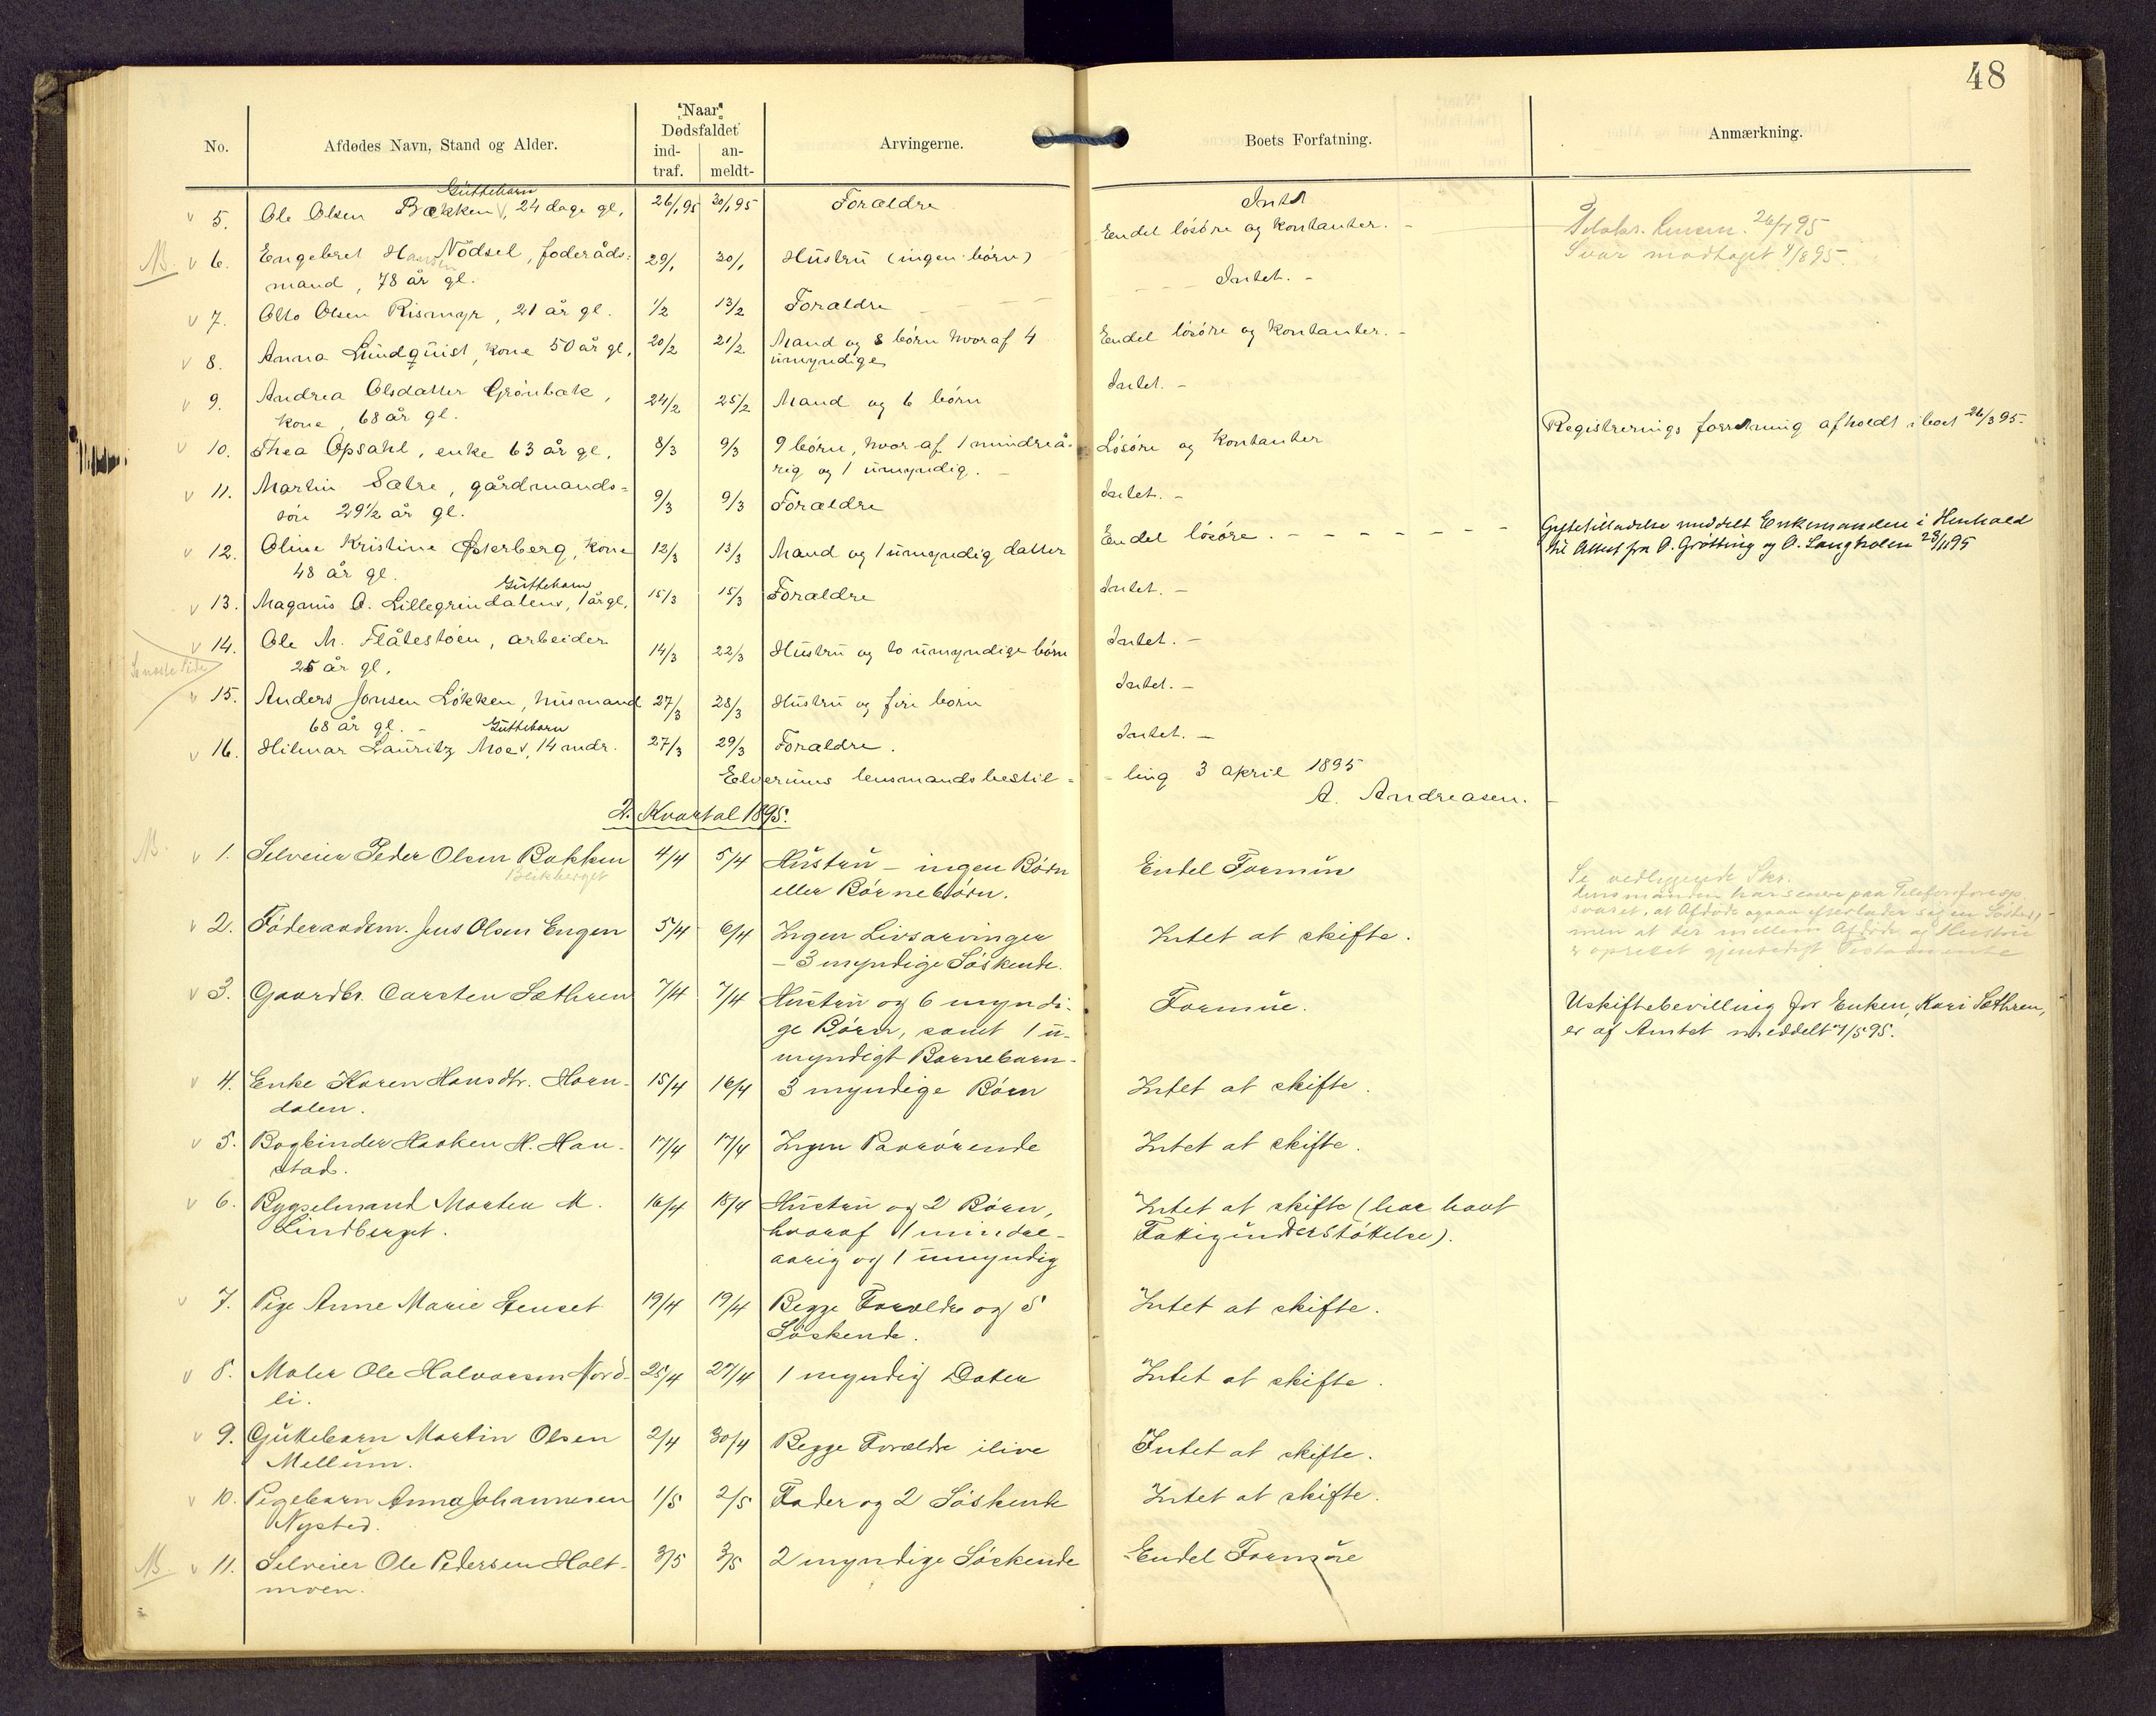 48
No.
Afdødes Navn, Stand og Alder.
Naar Dødsfaldet
ind-traf.
an-meldt-
Arvingerne.
Boets Forfatning.
Anmærkning.
Guttebarn
5. Ole Olsen Bækken, 24 dage gl. 26/1 95 30/1 95 Forældre Intet
6. Engebret Hansen Nödsel, föderåds- 29/1 30/1 Hustru (ingen börn) Endel lösöre og kontanter. -
mand, 78 år gl.
26/7 95
Svar modtaget 1/8 95.
7. Otto Olsen Rismyr, 21 år gl. 1/2 13/2 Forældre Intet. -
8. Anna Lundquist, kone 50 år gl. 20/2 21/2 Mand og 8 börn hvoraf 4 Endel lösöre og kontanter. -
umyndige
9. Andrea Olsdatter Grönbæk, 24/2 25/2 Mand og 6 börn Intet. -
kone, 68 år gl.
10. Thea Opsahl, enke 63 år gl. 8/3 9/3 9 börn, hvoraf 1 mindreå- Lösöre og kontanter Registrerings forretning afholdt i boet 26/3 95.
rig og 1 umyndig. -
11. Martin Sætre, gårdmands- 9/3 9/3 Forældre Intet. -
sön 29½ år gl.
12. Oline Kristine Østerberg, kone 12/3 13/3 Mand og 1 umyndig datter Endel lösöre. - - - - - - Giftetilladelse meddelt Enkemanden i Henhold
48 år gl. til Attest fra O. Grøtting og O. Langholen 23/11 95
Guttebarn
13. Magnus O. Lillegrindalen, 1 år gl. 15/3 15/3 Forældre Intet. -
14. Ole M. Flåtestöen, arbeider 14/3 22/3 Hustru og to umyndige börn Intet. -
25 år gl.
15. Anders Jonsen Lökken, husmand 27/3 28/3 Hustru og fire börn Intet. -
68 år gl. -
Guttebarn
16. Hilmar Lauritz Moe, 14 mdr. 27/3 29/3 Forældre. Intet. -
Elverums lensmandsbestil- ling 3 april 1895
A. Andreasen.
2. Kvartal 1895.
1. Selveier Peder Olsen Bakken 4/4 5/4 Hustru - ingen Börn Endel Formue
Blikberget eller Börnebörn.
Se vedliggende Skr.
Lensmanden har senere paa Telefonforesp.
svaret, at Afdøde ogsaa efterlader sig en Søster,
men at der mellem Afdøde og Hustru
er oprettet gjensidigt Testamente
2. Föderaadsm. Jens Olsen Engen 5/4 6/4 Ingen Livsarvinger Intet at skifte.
- 3 myndige Söskende.
3. Gaardbr. Carsten Sæthren 7/4 7/4 Hustru og 6 myndi- Formue. Uskiftebevilling for Enken, Kari Sæthren,
ge Börn, samt 1 u- er af Amtet meddelt 7/5 95.
myndigt Barnebarn.
4. Enke Karen Hansdtr. Horn- 15/4 16/4 3 myndige Börn Intet at skifte.
dalen.
5. Bogbinder Haaken H. Han- 17/4 17/4 Ingen Paarörende Intet at skifte.
stad.
6. Bygselmand Morten M. 16/4 18/4 Hustru og 2 Börn, Intet at skifte (har havt
Lindberget. hvoraf 1 mindre- Fattigunderstöttelse).
aarig og 1 umyndig
7. Pige Anne Marie Stenset 19/4 19/4 Begge Forældre og 5 Intet at skifte.
Söskende.
8. Maler Ole Halvorsen Nord- 25/4 27/4 1 myndig Datter Intet at skifte.
li.
9. Guttebarn Martin Olsen 2/4 30/4 Begge Forældre ilive Intet at skifte.
Mellum.
10. Pigebarn Anna Johannesen 1/5 2/5 Fader og 2 Söskende Intet at skifte.
Nysted.
11. Selveier Ole Pedersen Holt- 3/5 3/5 2 myndige Söskende Endel Formue
moen.